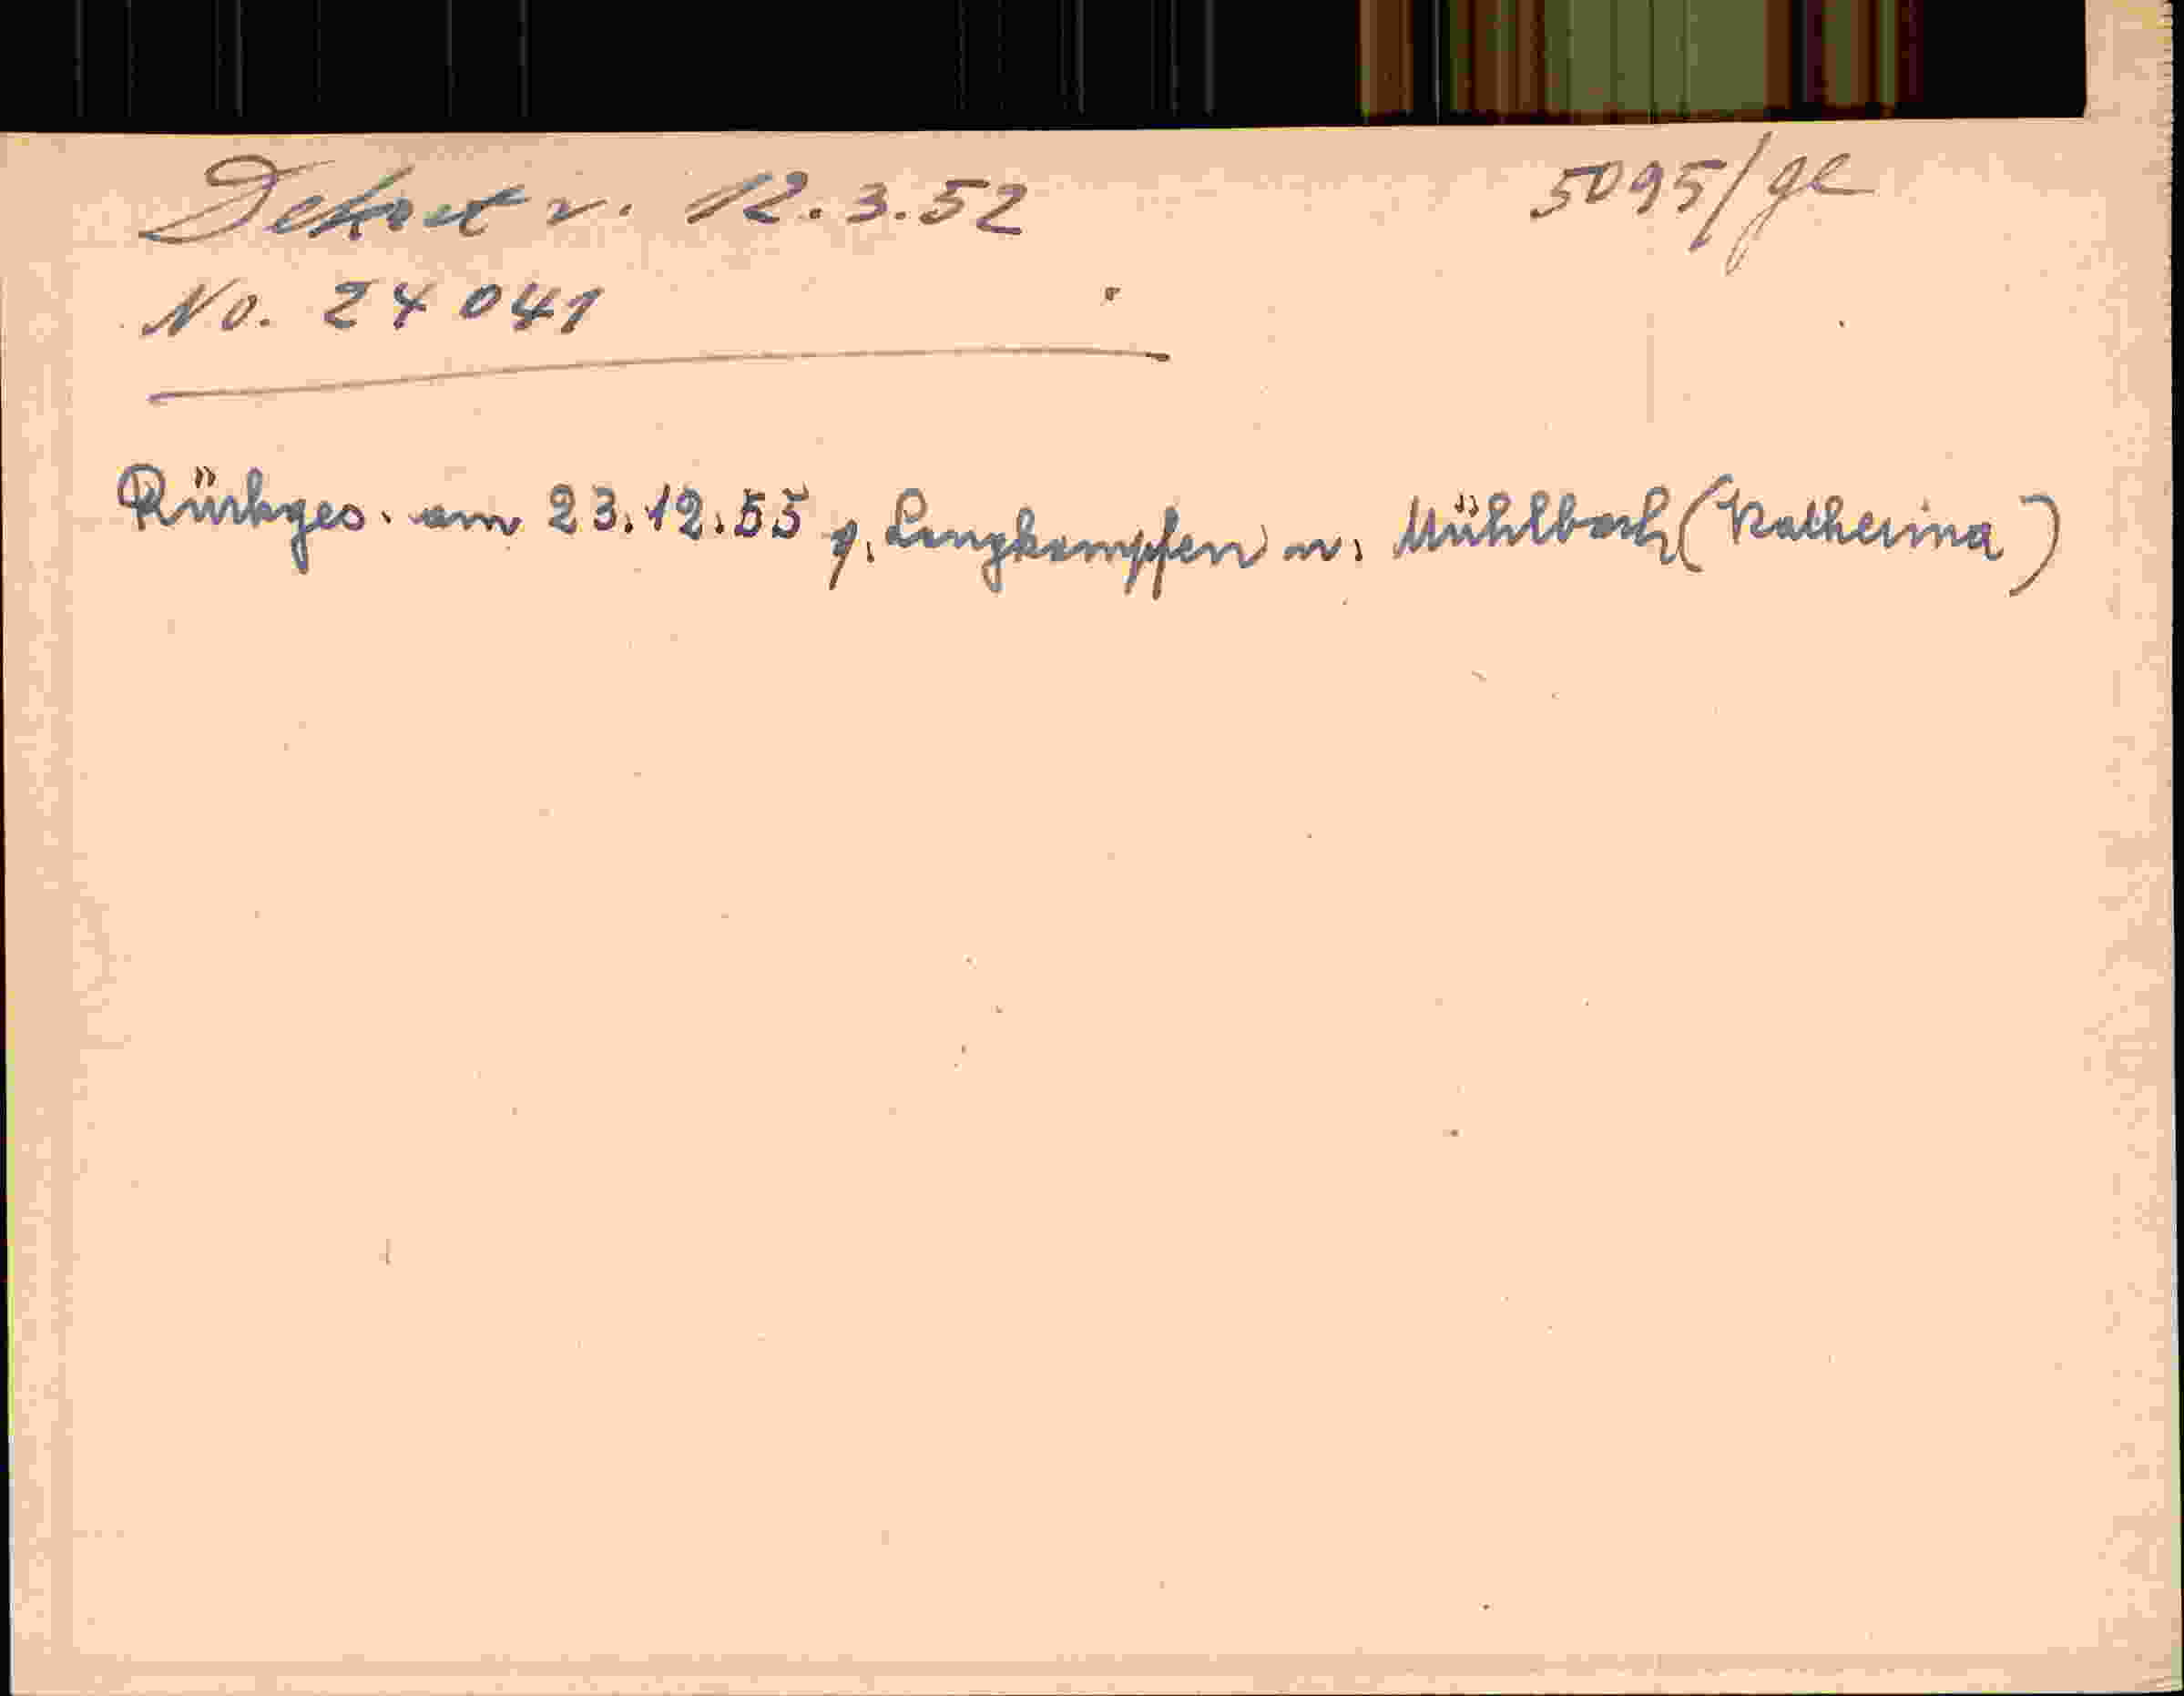 Dekret v. 12.3.52 5095/ge
No. 24041
Rückges. am 23.12.55 g. Langkampfen n. Mühlbach (Katherina)